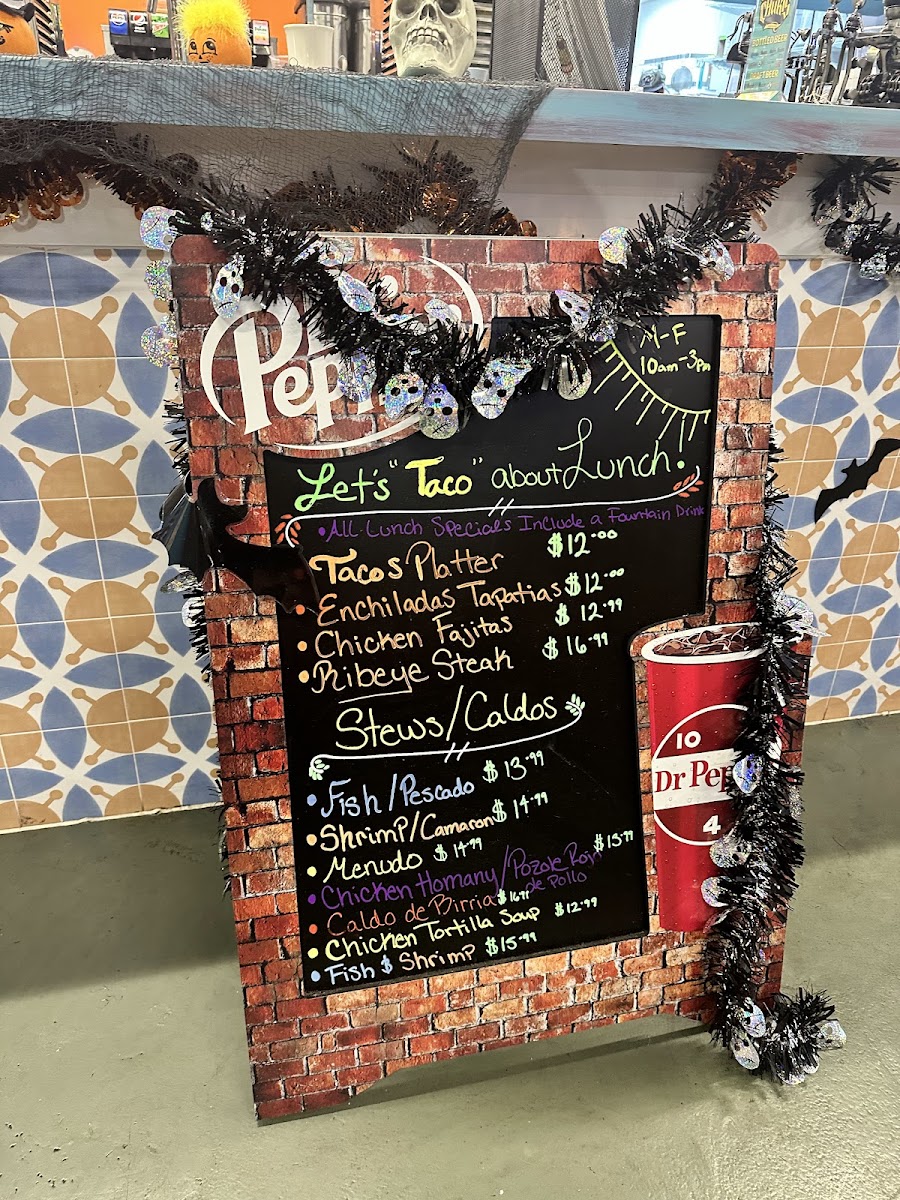 BOTTLED BEER
DRAFT BEER
Pep
M-F
10am-3pm
Let's "Taco" about Lunch!
•All Lunch Specials Include a Fountain Drink
•Tacos Platter $12.00
•Enchiladas Tapatias $12.00
•Chicken Fajitas $12.99
•Ribeye Steak $16.99
Stews/Caldos
•Fish/Pescado $13.99
•Shrimp/Camaron $14.99
•Menudo $14.99
•Chicken Homany/Pozole Rojo de Pollo $15.99
•Caldo de Birria $16.99
•Chicken Tortilla Soup $12.99
•Fish & Shrimp $15.99
10
Dr Pep
4